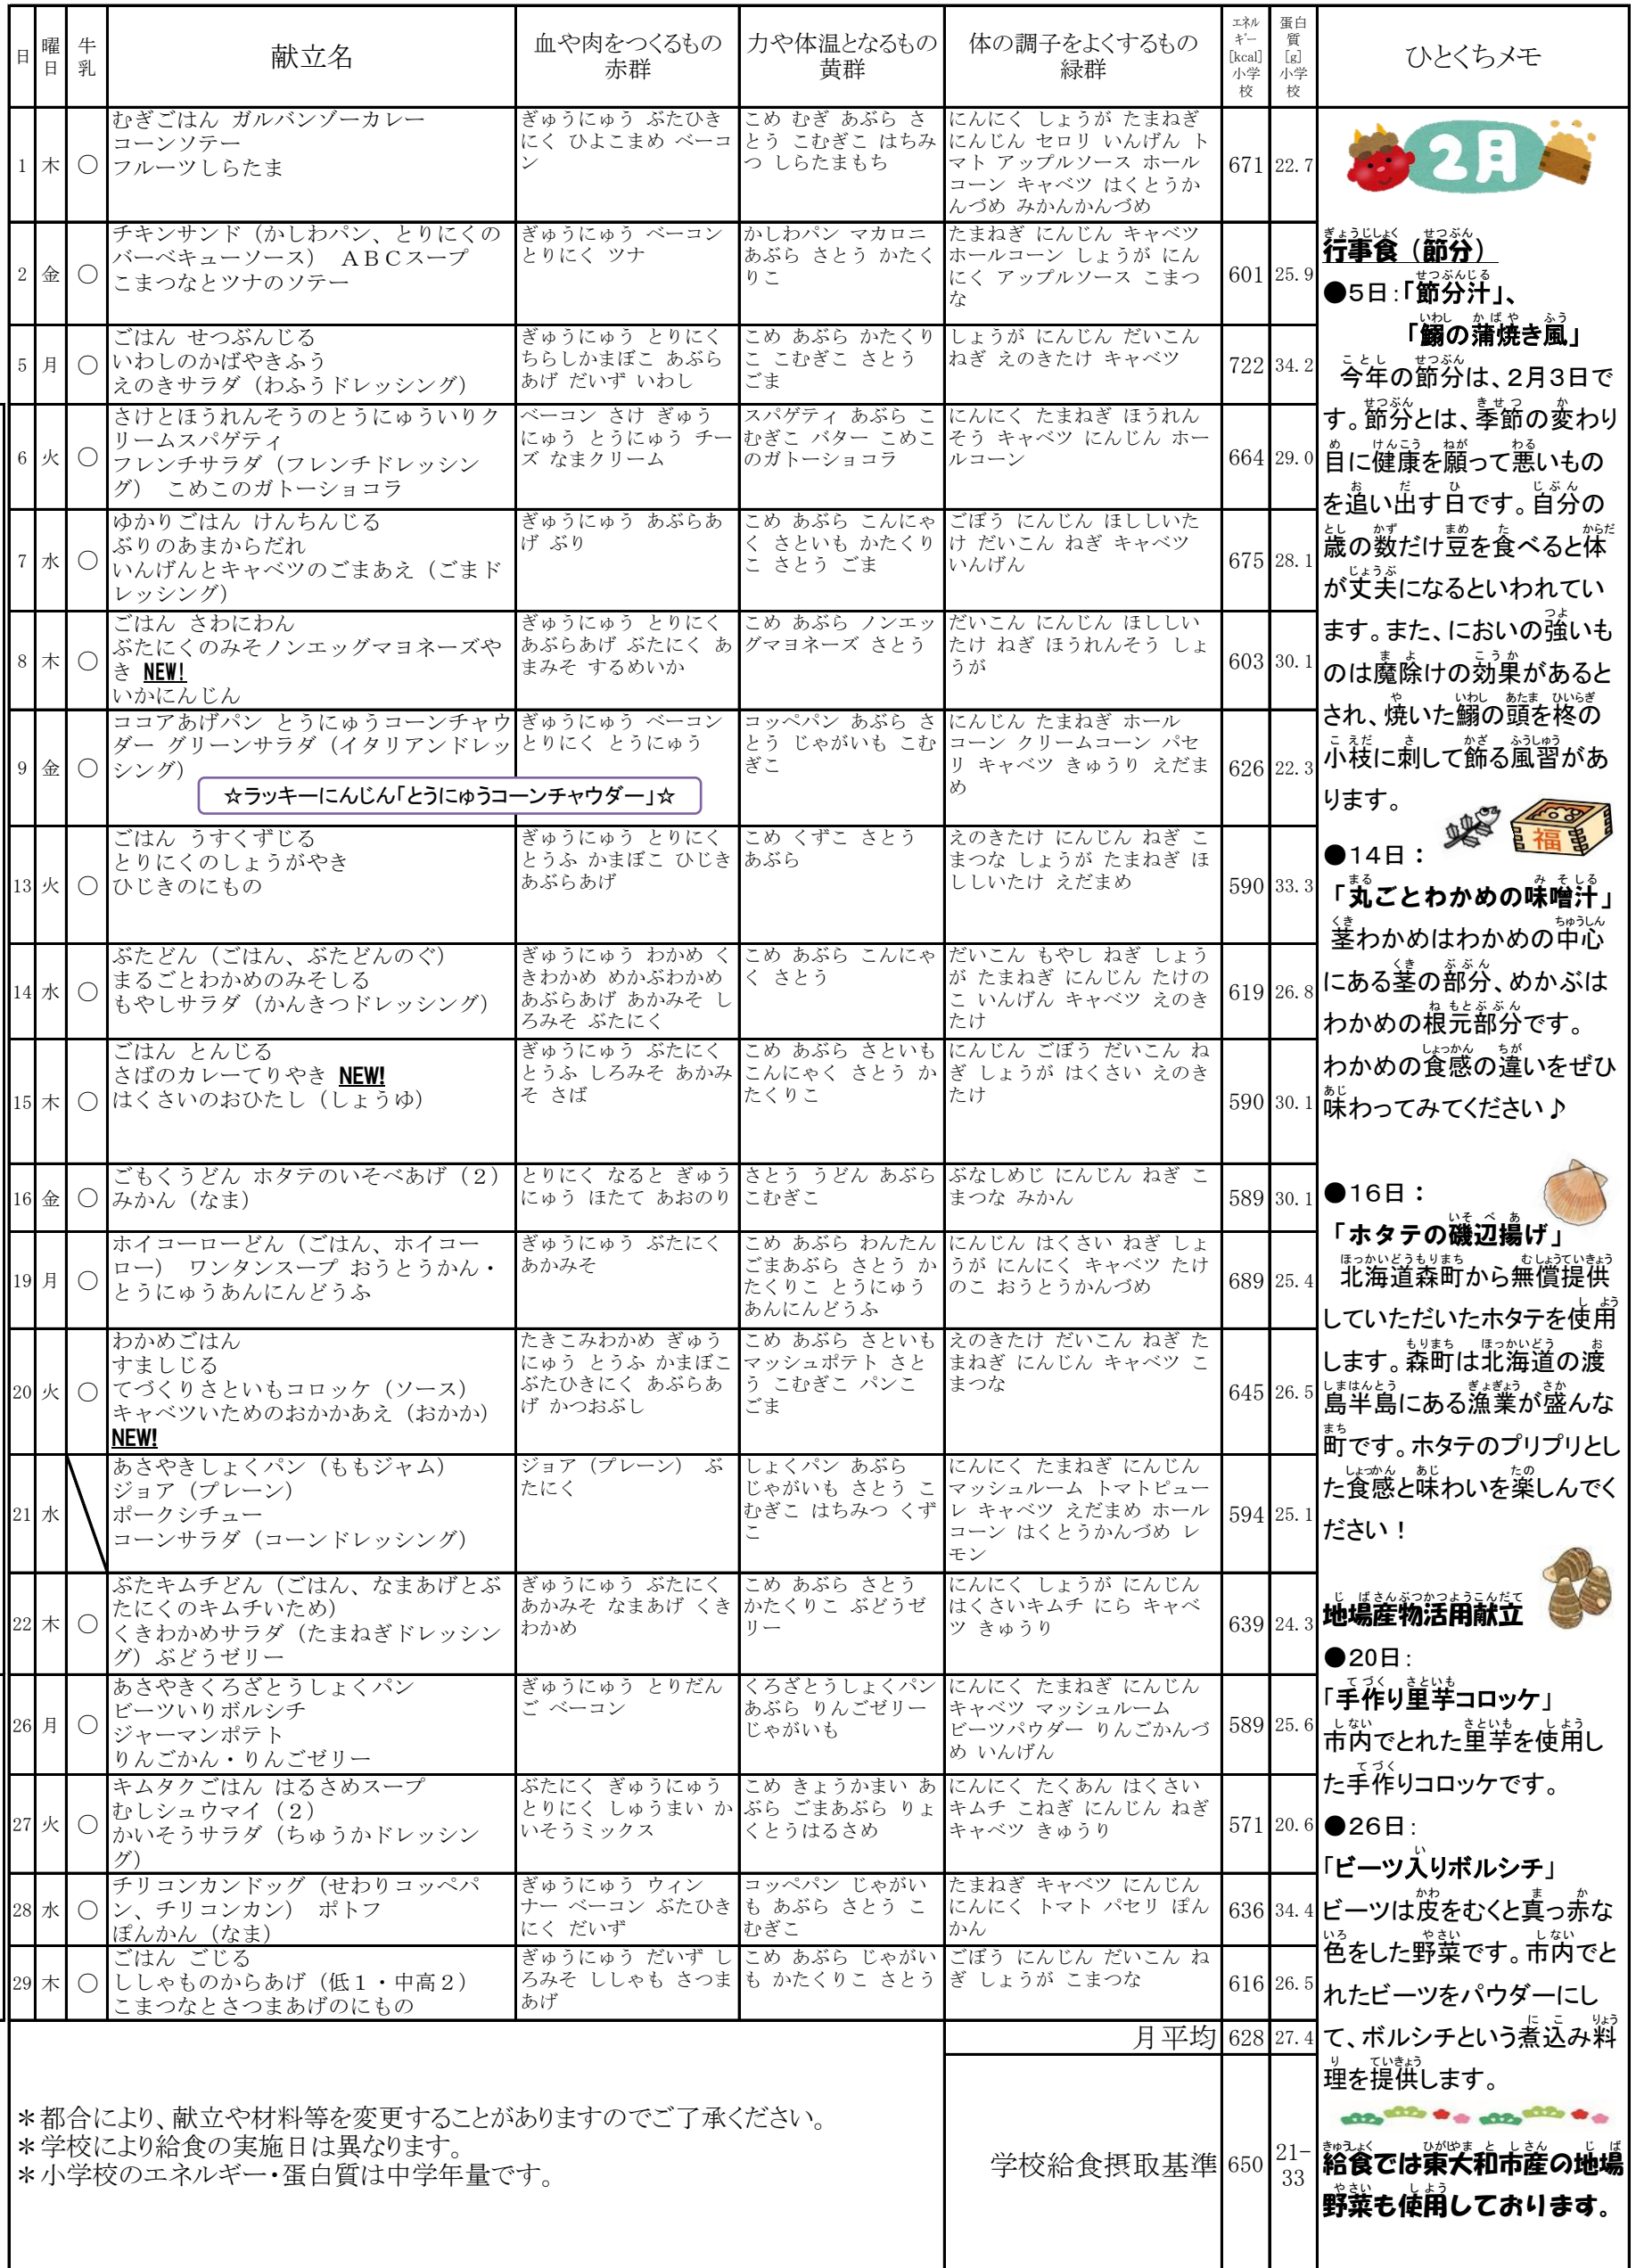 日 曜日 牛乳 献立名 血や肉をつくるもの 赤群 力や体温となるもの 黄群 体の調子をよくするもの 緑群 エネルギー [kcal] 小学校 蛋白質 [g] 小学校 ひとくちメモ
1 木 ○
むぎごはん ガルバンゾーカレー
コーンソテー
フルーツしらたま
ぎゅうにゅう ぶたひき
にく ひよこまめ ベーコ
ン
こめ むぎ あぶら さ
とう こむぎこ はちみ
つ しらたまもち
にんにく しょうが たまねぎ
にんじん セロリ いんげん ト
マト アップルソース ホール
コーン キャベツ はくとうか
んづめ みかんかんづめ
671 22.7
2 金 ○
チキンサンド（かしわパン、とりにくの
バーベキューソース） ＡＢＣスープ
こまつなとツナのソテー
ぎゅうにゅう ベーコン
とりにく ツナ
かしわパン マカロニ
あぶら さとう かたく
りこ
たまねぎ にんじん キャベツ
ホールコーン しょうが にん
にく アップルソース こまつ
な
601 25.9
5 月 ○
ごはん せつぶんじる
いわしのかばやきふう
えのきサラダ（わふうドレッシング）
ぎゅうにゅう とりにく
ちらしかまぼこ あぶら
あげ だいず いわし
こめ あぶら かたくり
こ こむぎこ さとう
ごま
しょうが にんじん だいこん
ねぎ えのきたけ キャベツ
722 34.2
6 火 ○
さけとほうれんそうのとうにゅういりク
リームスパゲティ
フレンチサラダ（フレンチドレッシン
グ） こめこのガトーショコラ
ベーコン さけ ぎゅう
にゅう とうにゅう チー
ズ なまクリーム
スパゲティ あぶら こ
むぎこ バター こめこ
のガトーショコラ
にんにく たまねぎ ほうれん
そう キャベツ にんじん ホー
ルコーン
664 29.0
7 水 ○
ゆかりごはん けんちんじる
ぶりのあまからだれ
いんげんとキャベツのごまあえ（ごまド
レッシング）
ぎゅうにゅう あぶらあ
げ ぶり
こめ あぶら こんにゃ
く さといも かたくり
こ さとう ごま
ごぼう にんじん ほししいた
け だいこん ねぎ キャベツ
いんげん
675 28.1
8 木 ○
ごはん さわにわん
ぶたにくのみそノンエッグマヨネーズや
き NEW!
いかにんじん
ぎゅうにゅう とりにく
あぶらあげ ぶたにく あ
まみそ するめいか
こめ あぶら ノンエッ
グマヨネーズ さとう
だいこん にんじん ほししい
たけ ねぎ ほうれんそう しょ
うが
603 30.1
9 金 ○
ココアあげパン とうにゅうコーンチャウ
ダー グリーンサラダ（イタリアンドレッ
シング）
☆ラッキーにんじん「とうにゅうコーンチャウダー」☆
ぎゅうにゅう ベーコン
とりにく とうにゅう
コッペパン あぶら さ
とう じゃがいも こむ
ぎこ
にんじん たまねぎ ホール
コーン クリームコーン パセ
リ キャベツ きゅうり えだま
め
626 22.3
13 火 ○
ごはん うすくずじる
とりにくのしょうがやき
ひじきのにもの
ぎゅうにゅう とりにく
とうふ かまぼこ ひじき
あぶらあげ
こめ くずこ さとう
あぶら
えのきたけ にんじん ねぎ こ
まつな しょうが たまねぎ ほ
ししいたけ えだまめ
590 33.3
14 水 ○
ぶたどん（ごはん、ぶたどんのぐ）
まるごとわかめのみそしる
もやしサラダ（かんきつドレッシング）
ぎゅうにゅう わかめ く
きわかめ めかぶわかめ
あぶらあげ あかみそ し
ろみそ ぶたにく
こめ あぶら こんにゃ
く さとう
だいこん もやし ねぎ しょう
が たまねぎ にんじん たけの
こ いんげん キャベツ えのき
たけ
619 26.8
15 木 ○
ごはん とんじる
さばのカレーてりやき NEW!
はくさいのおひたし（しょうゆ）
ぎゅうにゅう ぶたにく
とうふ しろみそ あかみ
そ さば
こめ あぶら さといも
こんにゃく さとう か
たくりこ
にんじん ごぼう だいこん ね
ぎ しょうが はくさい えのき
たけ
590 30.1
16 金 ○
ごもくうどん ホタテのいそべあげ（２）
みかん（なま）
とりにく なると ぎゅう
にゅう ほたて あおのり
さとう うどん あぶら
こむぎこ
ぶなしめじ にんじん ねぎ こ
まつな みかん
589 30.1
19 月 ○
ホイコーローどん（ごはん、ホイコー
ロー） ワンタンスープ おうとうかん・
とうにゅうあんにんどうふ
ぎゅうにゅう ぶたにく
あかみそ
こめ あぶら わんたん
ごまあぶら さとう か
たくりこ とうにゅう
あんにんどうふ
にんじん はくさい ねぎ しょ
うが にんにく キャベツ たけ
のこ おうとうかんづめ
689 25.4
20 火 ○
わかめごはん
すましじる
てづくりさといもコロッケ（ソース）
キャベツいためのおかかあえ（おかか）
NEW!
たきこみわかめ ぎゅう
にゅう とうふ かまぼこ
ぶたひきにく あぶらあ
げ かつおぶし
こめ あぶら さといも
マッシュポテト さと
う こむぎこ パンこ
ごま
えのきたけ だいこん ねぎ た
まねぎ にんじん キャベツ こ
まつな
645 26.5
21 水
あさやきしょくパン（ももジャム）
ジョア（プレーン）
ポークシチュー
コーンサラダ（コーンドレッシング）
ジョア（プレーン） ぶ
たにく
しょくパン あぶら
じゃがいも さとう こ
むぎこ はちみつ くず
こ
にんにく たまねぎ にんじん
マッシュルーム トマトピュー
レ キャベツ えだまめ ホール
コーン はくとうかんづめ レ
モン
594 25.1
22 木 ○
ぶたキムチどん（ごはん、なまあげとぶ
たにくのキムチいため）
くきわかめサラダ（たまねぎドレッシン
グ）ぶどうゼリー
ぎゅうにゅう ぶたにく
あかみそ なまあげ くき
わかめ
こめ あぶら さとう
かたくりこ ぶどうゼ
リー
にんにく しょうが にんじん
はくさいキムチ にら キャベ
ツ きゅうり
639 24.3
26 月 ○
あさやきくろざとうしょくパン
ビーツいりボルシチ
ジャーマンポテト
りんごかん・りんごゼリー
ぎゅうにゅう とりだん
ご ベーコン
くろざとうしょくパン
あぶら りんごゼリー
じゃがいも
にんにく たまねぎ にんじん
キャベツ マッシュルーム
ビーツパウダー りんごかんづ
め いんげん
589 25.6
27 火 ○
キムタクごはん はるさめスープ
むしシュウマイ（２）
かいそうサラダ（ちゅうかドレッシン
グ）
ぶたにく ぎゅうにゅう
とりにく しゅうまい か
いそうミックス
こめ きょうかまい あ
ぶら ごまあぶら りょ
くとうはるさめ
にんにく たくあん はくさい
キムチ こねぎ にんじん ねぎ
キャベツ きゅうり
571 20.6
28 水 ○
チリコンカンドッグ（せわりコッペパ
ン、チリコンカン） ポトフ
ぽんかん（なま）
ぎゅうにゅう ウィン
ナー ベーコン ぶたひき
にく だいず
コッペパン じゃがい
も あぶら さとう こ
むぎこ
たまねぎ キャベツ にんじん
にんにく トマト パセリ ぽん
かん
636 34.4
29 木 ○
ごはん ごじる
ししゃものからあげ（低１・中高２）
こまつなとさつまあげのにもの
ぎゅうにゅう だいず し
ろみそ ししゃも さつま
あげ
こめ あぶら じゃがい
も かたくりこ さとう
ごぼう にんじん だいこん ね
ぎ しょうが こまつな
616 26.5
月平均 628 27.4
学校給食摂取基準 650 21-33
＊都合により、献立や材料等を変更することがありますのでご了承ください。
＊学校により給食の実施日は異なります。
＊小学校のエネルギー・蛋白質は中学年量です。
2月
ぎょうじしょく せつぶん
行事食（節分）
せつぶんじる
●5日：「節分汁」、
いわし かばや ふう
「鰯の蒲焼き風」
ことし せつぶん
今年の節分は、2月3日で
せつぶん きせつ か
す。節分とは、季節の変わり
め けんこう ねが わる
目に健康を願って悪いもの
お だ ひ じぶん
を追い出す日です。自分の
とし かず まめ た からだ
歳の数だけ豆を食べると体
じょうぶ
が丈夫になるといわれてい
つよ
ます。また、においの強いも
まよ こうか
のは魔除けの効果があると
や いわし あたま ひいらぎ
され、焼いた鰯の頭を柊の
こえだ さ かざ ふうしゅう
小枝に刺して飾る風習があ
ります。
福
●14日：
まる みそしる
「丸ごとわかめの味噌汁」
くき ちゅうしん
茎わかめはわかめの中心
くき ぶぶん
にある茎の部分、めかぶは
ねもとぶぶん
わかめの根元部分です。
しょっかん ちが
わかめの食感の違いをぜひ
あじ
味わってみてください♪
●16日：
いそべあ
「ホタテの磯辺揚げ」
ほっかいどうもりまち むしょうていきょう
北海道森町から無償提供
しよう
していただいたホタテを使用
もりまち ほっかいどう お
します。森町は北海道の渡
しまはんとう ぎょぎょう さか
島半島にある漁業が盛んな
まち
町です。ホタテのプリプリとし
しょっかん あじ たの
た食感と味わいを楽しんでく
ださい！
じばさんぶつかつようこんだて
地場産物活用献立
●20日：
てづく さといも
「手作り里芋コロッケ」
しない さといも しよう
市内でとれた里芋を使用し
てづく
た手作りコロッケです。
●26日：
い
「ビーツ入りボルシチ」
かわ ま か
ビーツは皮をむくと真っ赤な
いろ やさい しない
色をした野菜です。市内でと
れたビーツをパウダーにし
にこ りょう
て、ボルシチという煮込み料
り ていきょう
理を提供します。
きゅうしょく ひがしやまとしさん じば
給食では東大和市産の地場
やさい しよう
野菜も使用しております。